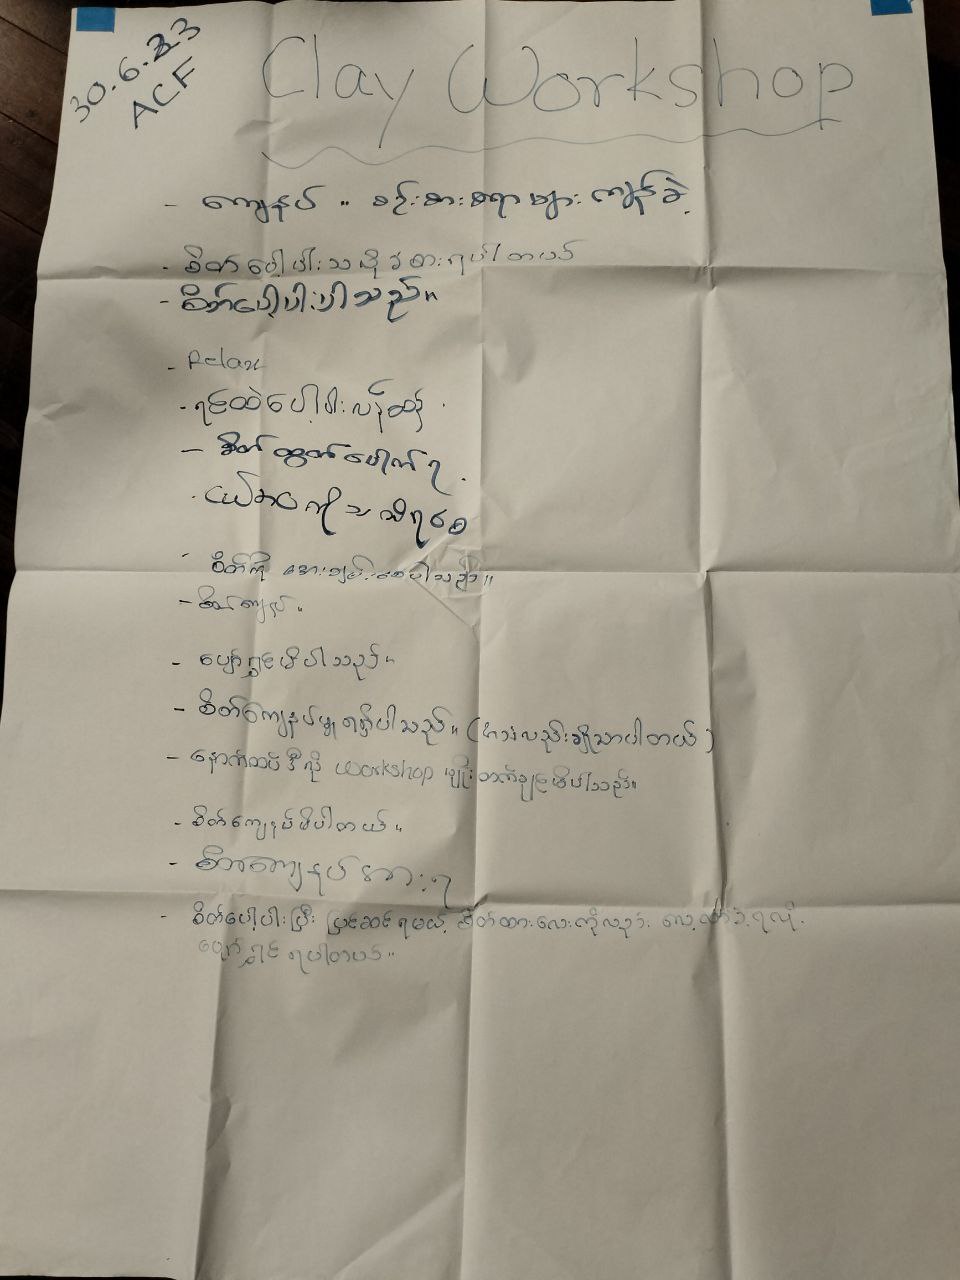 30.6.23
ACF
Clay Workshop
- ကျေနပ် ။ စဉ်းစားစရာများ ကျန်ခဲ့
- စိတ်ပေါ့ပါးသလို ခံစားရပါတယ်
- စိတ်ပေါ့ပါးပါသည်။
- Relax
- ရင်ထဲပေါ့ပါး လန်းဆန်း
- စိတ်ထွက်ပေါက်ရ
- ငယ်ဘဝကို သတိရစေ
- စိတ်ကို အေးချမ်းစေပါသည်။
- စိတ်ကျေနပ်။
- ပျော်ရွှင်မိပါသည်။
- စိတ်ကျေနပ်မှုရရှိပါသည်။ (စားလည်းချိုသာပါတယ်)
- နောက်ထပ် ဒီလို workshop မျိုး တက်ချင်မိပါသည်။
- စိတ်ကျေနပ်မိပါတယ်။
- စိတ်ကျေနပ်အားရ
- စိတ်ပေါ့ပါးပြီး ပြင်ဆင်ရမယ့် စိတ်ထားလေးကိုလည်း လေ့လာခဲ့ရလို့
ပျော်ရွှင်ရပါတယ်။